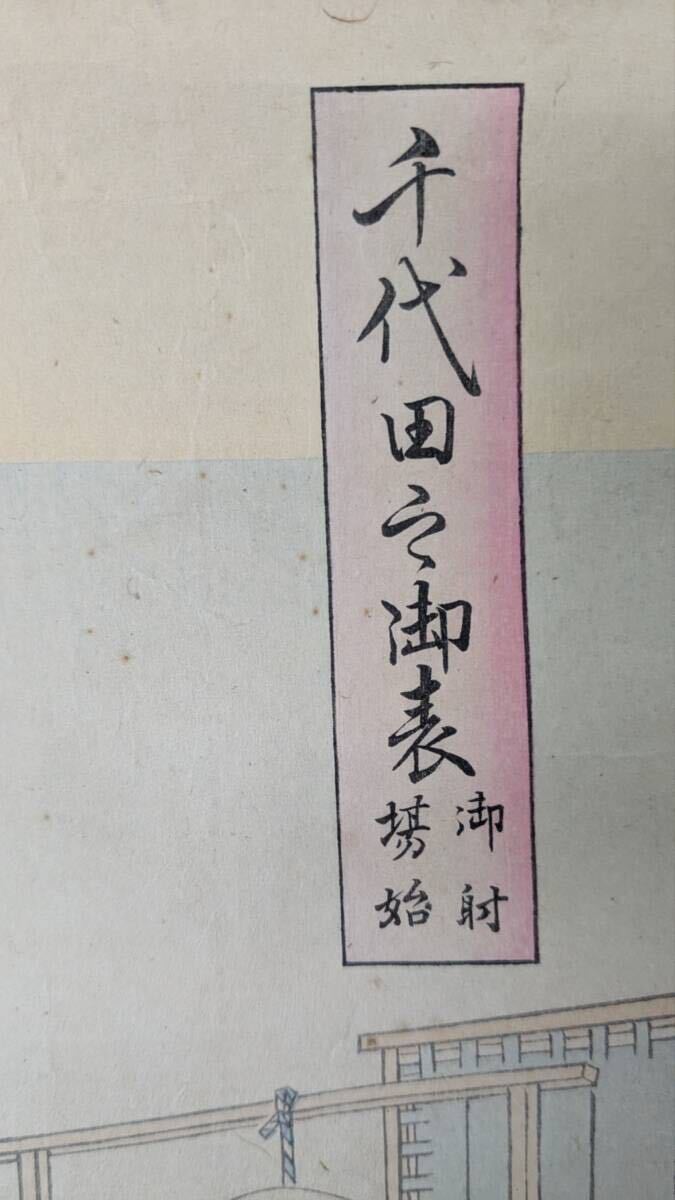 千代田之御表
御射
場始